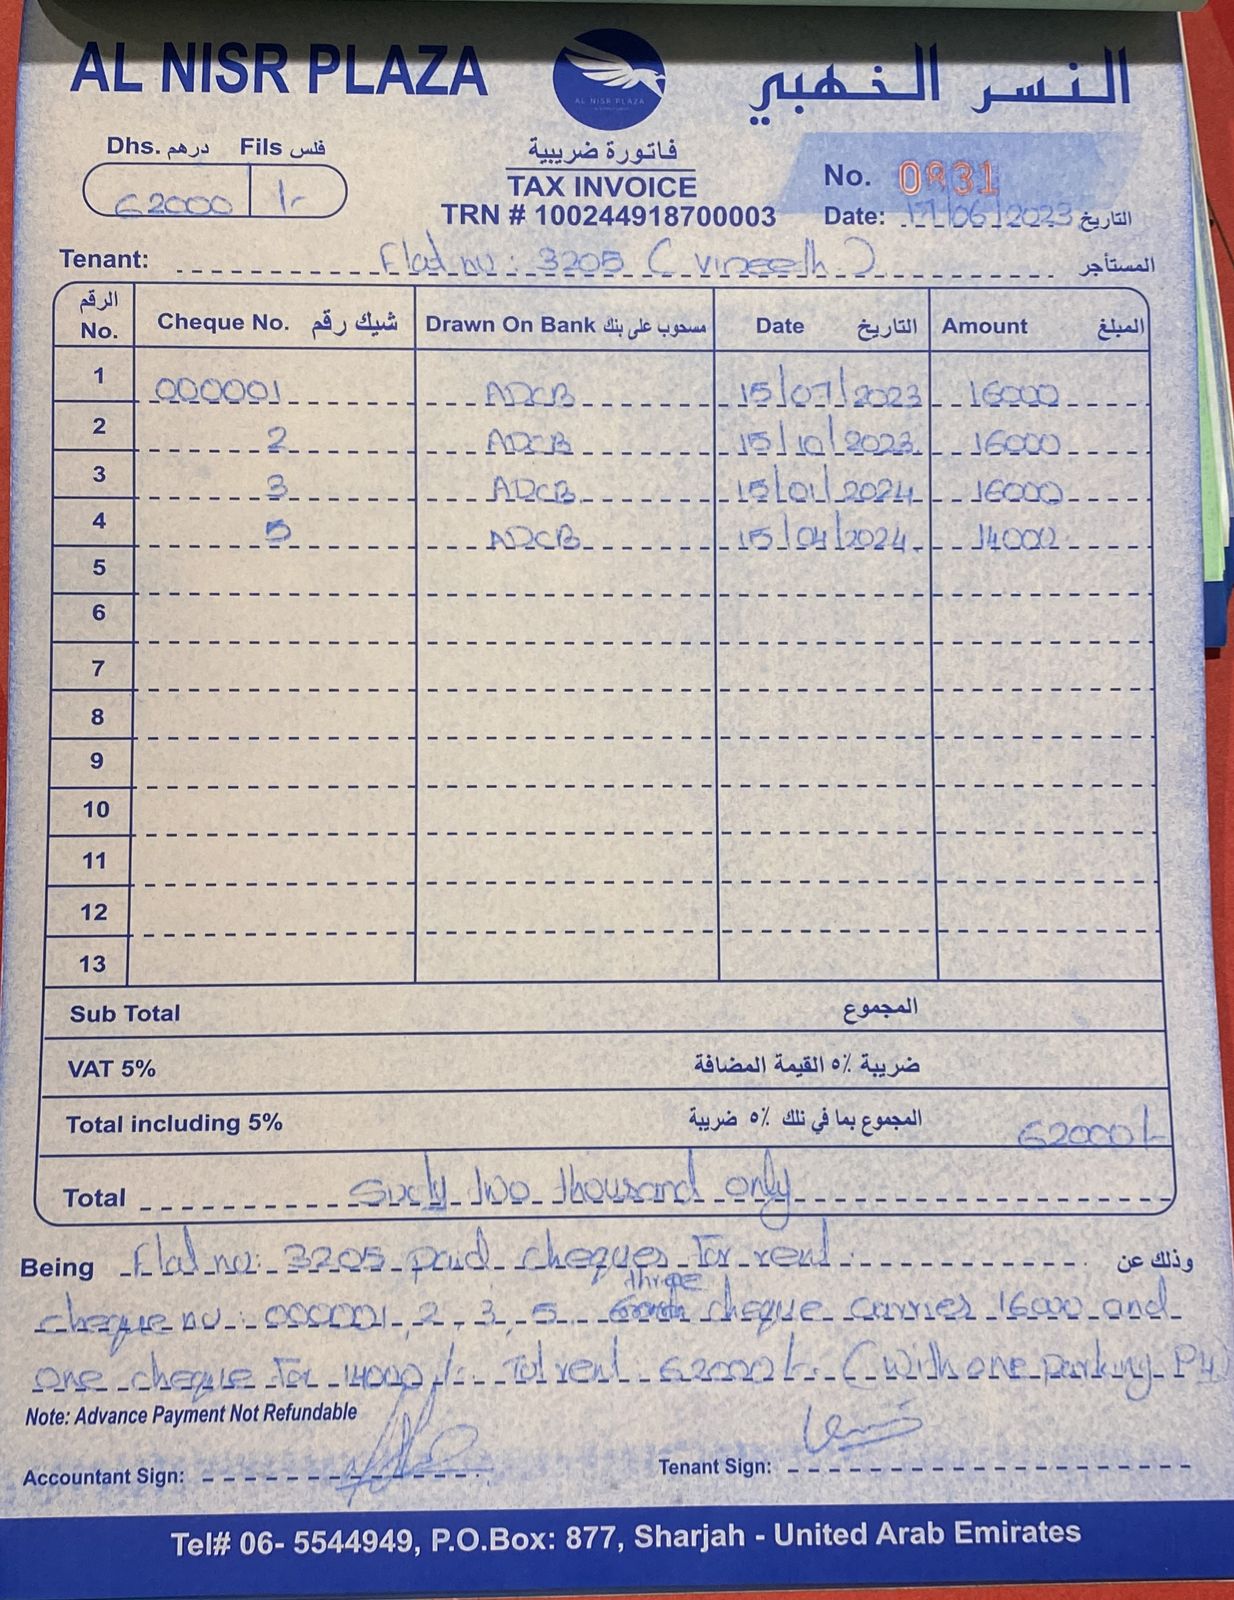 AL NISR PLAZA
AL NISR PLAZA
النسر الذهبي
Dhs. درهم Fils فلس
62000 /-
فاتورة ضريبية
TAX INVOICE
TRN # 100244918700003
No. 0831
Date: 17/06/2023 التاريخ
Tenant: Flat no: 3205 (Vineeth) المستأجر
الرقم No. Cheque No. شيك رقم Drawn On Bank مسحوب على بنك Date التاريخ Amount المبلغ
1 000001 ADCB 15/07/2023 16000
2 2 ADCB 15/10/2023 16000
3 3 ADCB 15/01/2024 16000
4 5 ADCB 15/04/2024 14000
5
6
7
8
9
10
11
12
13
Sub Total المجموع
VAT 5% ضريبة ٥٪ القيمة المضافة
Total including 5% المجموع بما في تلك ٥٪ ضريبة 62000/-
Total Sixty two thousand only
Being Flat no: 3205 paid cheques for rent. وذلك عن
three
cheque no. 000001, 2, 3, 5 cheque carries 16000 and
one cheque for 14000/-. Tot rent 62000/-. (With one parking P4)
Note: Advance Payment Not Refundable
Accountant Sign:
Tenant Sign:
Tel# 06- 5544949, P.O.Box: 877, Sharjah - United Arab Emirates